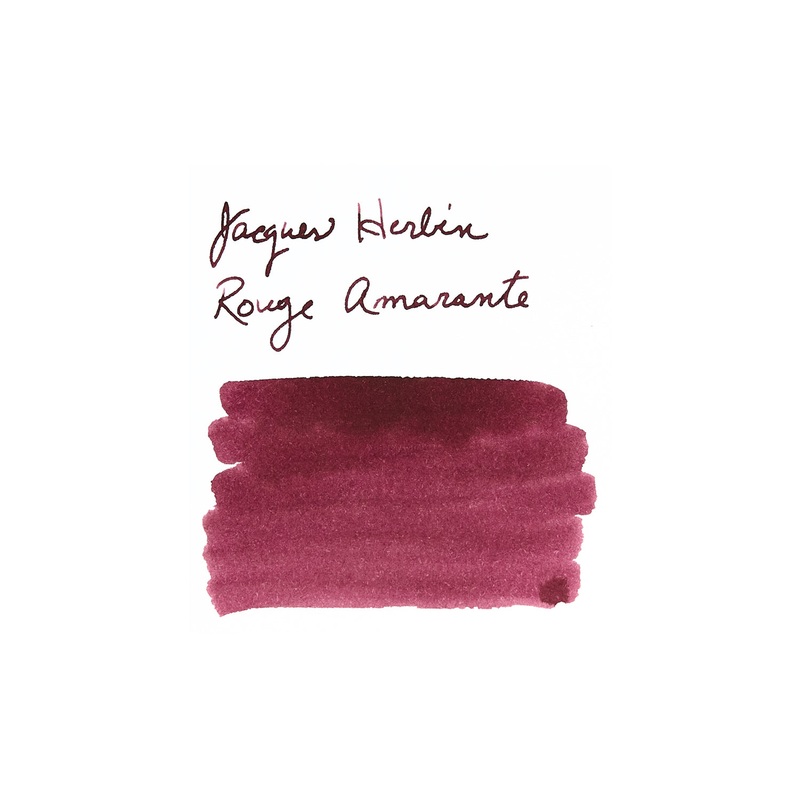 Jacques Herbin
Rouge Amarante